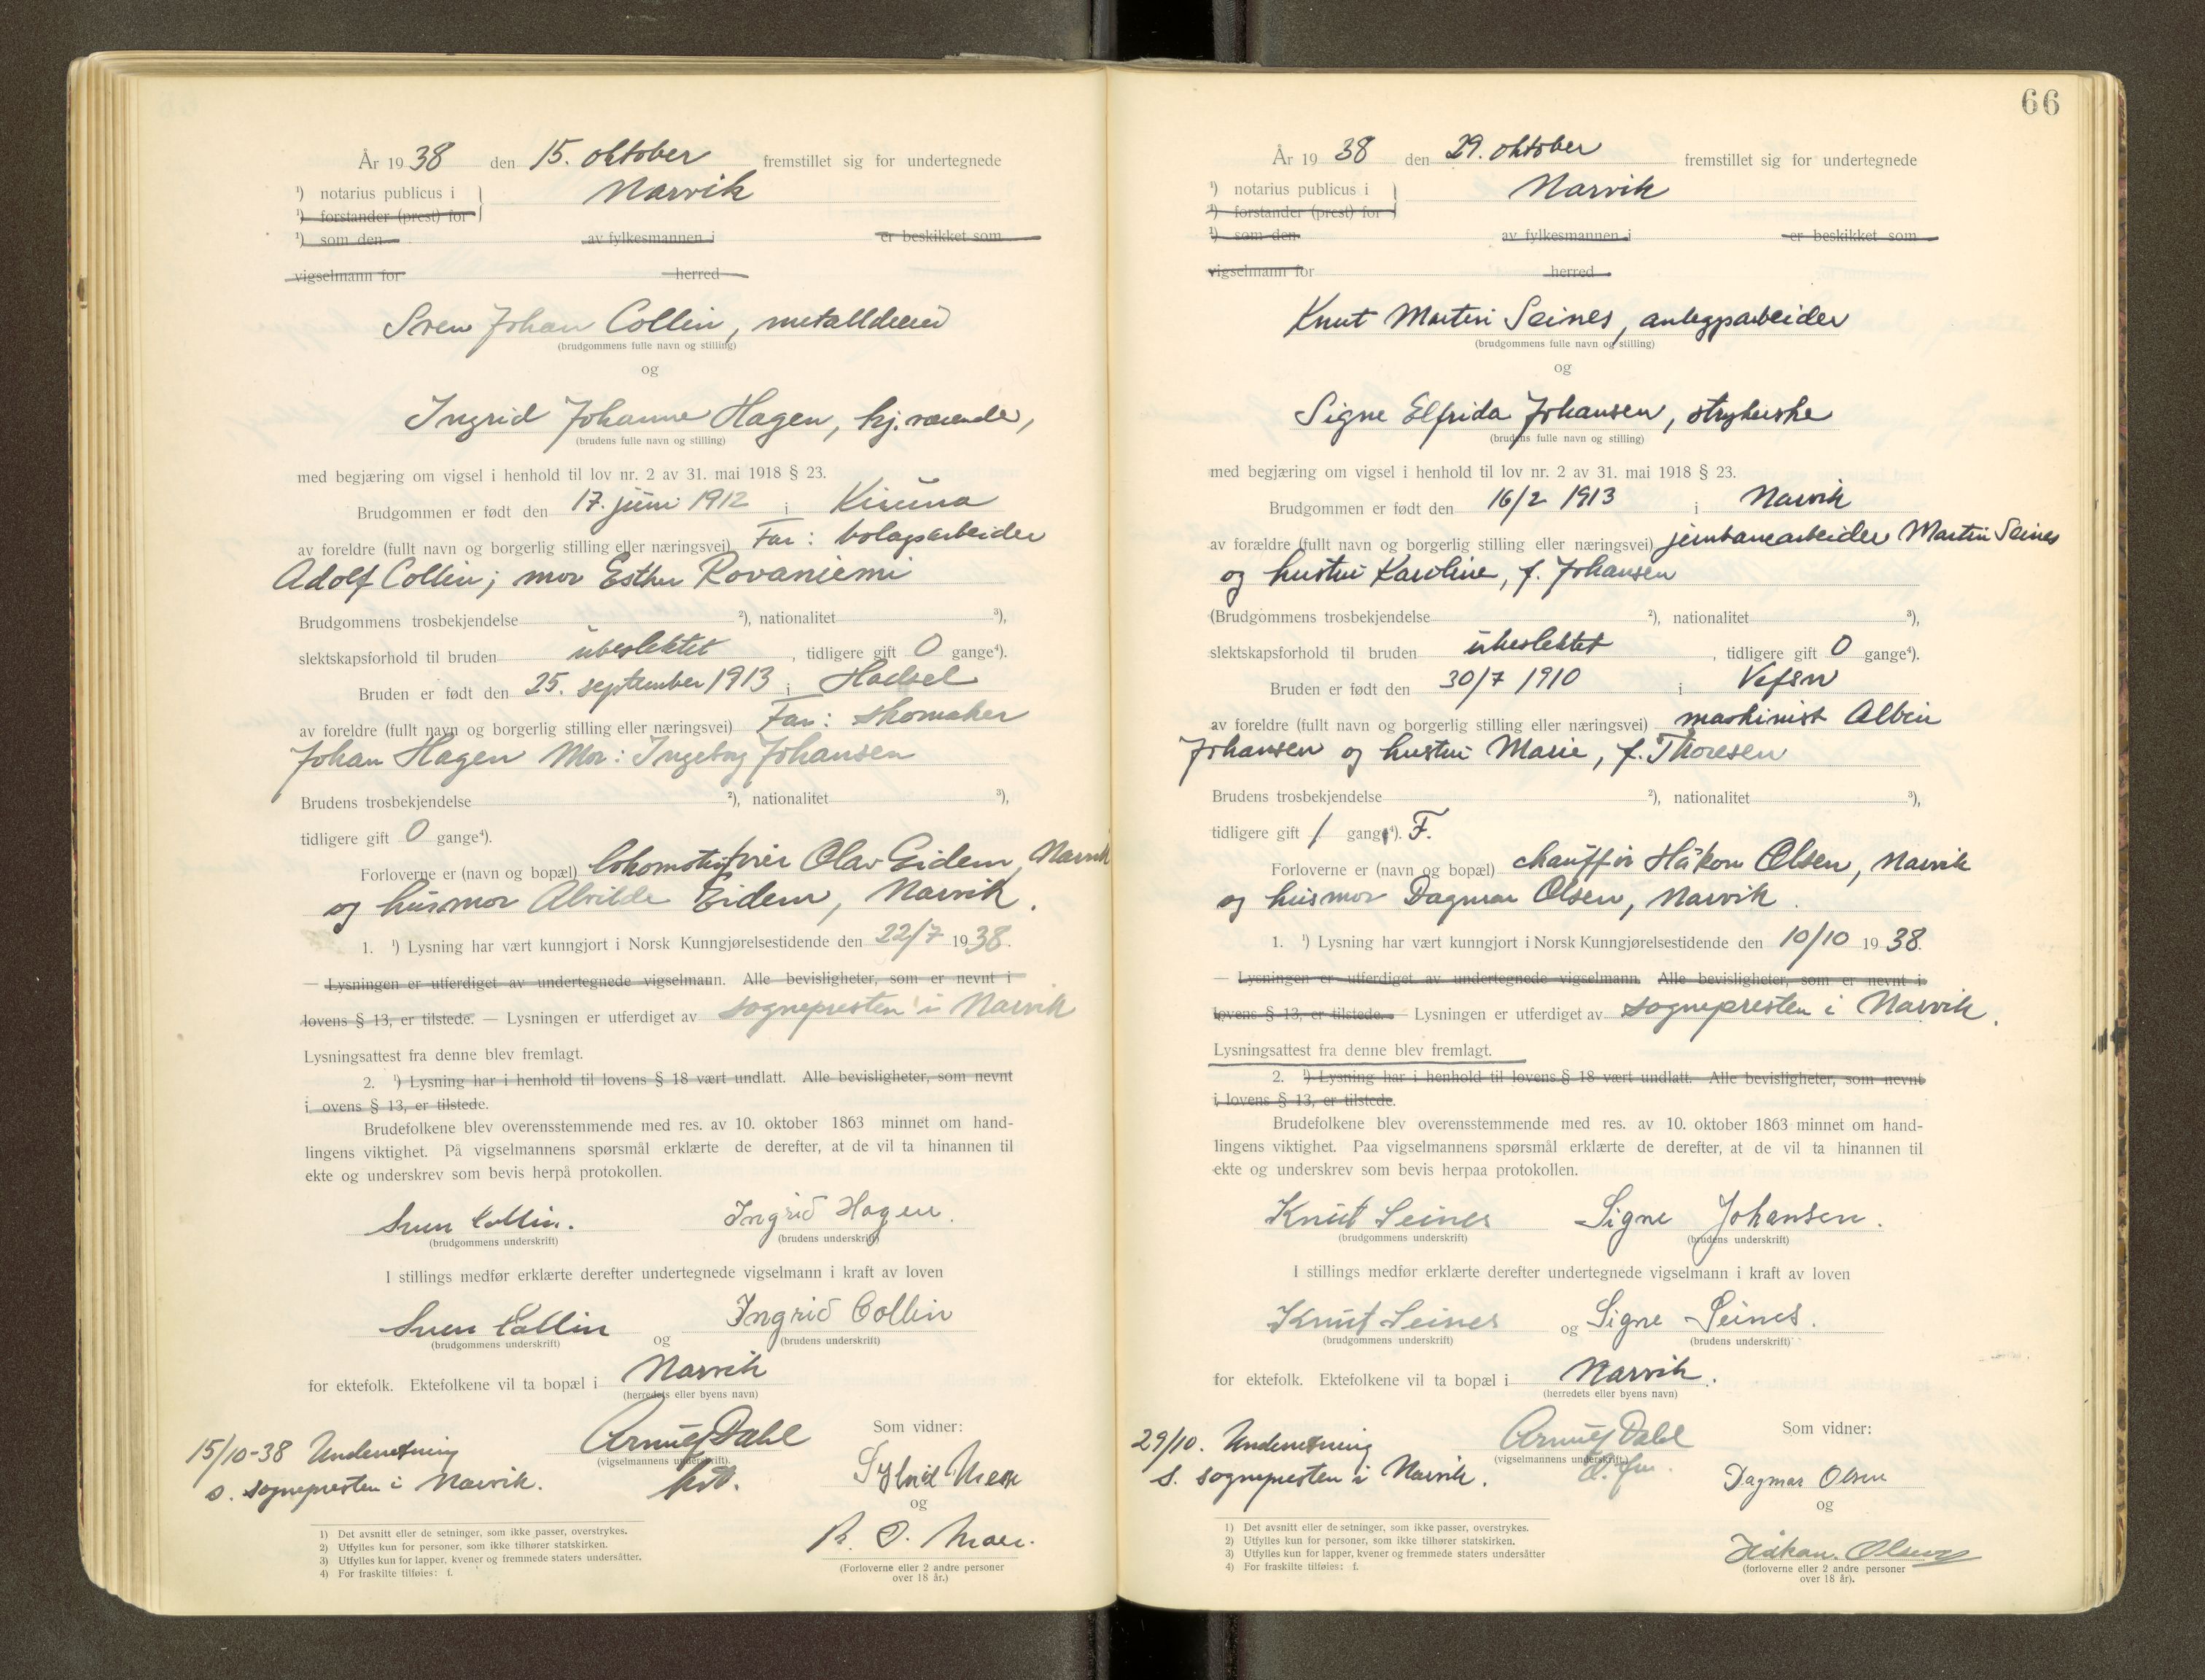 År 1938 den 15. oktober fremstillet sig for undertegnede
¹) notarius publicus i Narvik
¹) forstander (prest) for
¹) som den av fylkesmannen i er beskikket som
vigselmann for herred
Sven Johan Collin, metalldreier
(brudgommens fulle navn og stilling)
og
Ingrid Johanne Hagen, hj.værende,
(brudens fulle navn og stilling)
med begjæring om vigsel i henhold til lov nr. 2 av 31. mai 1918 § 23.
Brudgommen er født den 17. juni 1912 i Kiruna
av foreldre (fullt navn og borgerlig stilling eller næringsvei) Far: bolagsarbeider
Adolf Collin; mor Esther Rovaniemi
Brudgommens trosbekjendelse ²), nationalitet ³),
slektskapsforhold til bruden ubeslektet, tidligere gift 0 gange⁴).
Bruden er født den 25. september 1913 i Hadsel
av foreldre (fullt navn og borgerlig stilling eller næringsvei) Far: skomaker
Johan Hagen Mor: Ingeborg Johansen
Brudens trosbekjendelse ²), nationalitet ³),
tidligere gift 0 gange⁴).
Forloverne er (navn og bopæl) lokomotivfører Olav Eidem, Narvik
og husmor Alvilde Eidem, Narvik.
1. ¹) Lysning har vært kunngjort i Norsk Kunngjørelsestidende den 22/7 1938.
— Lysningen er utferdiget av undertegnede vigselmann. Alle bevisligheter, som er nevnt i
lovens § 13, er tilstede. — Lysningen er utferdiget av sognepresten i Narvik
Lysningsattest fra denne blev fremlagt.
2. ¹) Lysning har i henhold til lovens § 18 vært undlatt. Alle bevisligheter, som nevnt
i ovens § 13, er tilstede.
Brudefolkene blev overensstemmende med res. av 10. oktober 1863 minnet om hand-
lingens viktighet. På vigselmannens spørsmål erklærte de derefter, at de vil ta hinannen til
ekte og underskrev som bevis herpå protokollen.
Sven Collin. Ingrid Hagen.
(brudgommens underskrift) (brudens underskrift)
I stillings medfør erklærte derefter undertegnede vigselmann i kraft av loven
Sven Collin og Ingrid Collin
(brudgommens underskrift) (brudens underskrift)
for ektefolk. Ektefolkene vil ta bopæl i Narvik
(herredets eller byens navn)
15/10-38 Underretning Arnulf Dahl Som vidner:
(vigselmannens underskrift).
s. sognepresten i Narvik.
og
1) Det avsnitt eller de setninger, som ikke passer, overstrykes.
2) Utfylles kun for personer, som ikke tilhører statskirken.
3) Utfylles kun for lapper, kvener og fremmede staters undersåtter.
4) For fraskilte tilføies: f.
(Forloverne eller 2 andre personer
over 18 år.)
66
År 1938 den 29. oktober fremstillet sig for undertegnede
¹) notarius publicus i Narvik
¹) forstander (prest) for
¹) som den av fylkesmannen i er beskikket som
vigselmann for herred
Knut Martin Seines, anleggsarbeider
(brudgommens fulle navn og stilling)
og
Signe Elfrida Johansen, strykerske
(brudens fulle navn og stilling)
med begjæring om vigsel i henhold til lov nr. 2 av 31. mai 1918 § 23.
Brudgommen er født den 16/2 1913 i Narvik
av forældre (fullt navn og borgerlig stilling eller næringsvei) jernbanearbeider Martin Seines
og hustru Karoline, f. Johansen
(Brudgommens trosbekjendelse ²), nationalitet ³),
slektskapsforhold til bruden ubeslektet, tidligere gift 0 gange⁴).
Bruden er født den 30/7 1910 i Vefsn
av foreldre (fullt navn og borgerlig stilling eller næringsvei) maskinist Albin
Johansen og hustru Marie, f. Thoresen
Brudens trosbekjendelse ²), nationalitet ³),
tidligere gift 1 gang⁴). F.
Forloverne er (navn og bopæl) chauffør Håkon Olsen, Narvik
og husmor Dagmar Olsen, Narvik.
1. ¹) Lysning har vært kunngjort i Norsk Kunngjørelsestidende den 10/10 1938.
— Lysningen er utferdiget av undertegnede vigselmann. Alle bevisligheter, som er nevnt i
lovens § 13, er tilstede. — Lysningen er utferdiget av sognepresten i Narvik.
Lysningsattest fra denne blev fremlagt.
2. ¹) Lysning har i henhold til lovens § 18 vært undlatt. Alle bevisligheter, som nevnt
i lovens § 13, er tilstede.
Brudefolkene blev overensstemmende med res. av 10. oktober 1863 minnet om hand-
lingens viktighet. Paa vigselmannens spørsmål erklærte de derefter, at de vil ta hinannen til
ekte og underskrev som bevis herpaa protokollen.
Knut Seines Signe Johansen.
(brudgommens underskrift) (brudens underskrift)
I stillings medfør erklærte derefter undertegnede vigselmann i kraft av loven
Knut Seines og Signe Seines.
(brudgommens underskrift) (brudens underskrift)
for ektefolk. Ektefolkene vil ta bopæl i Narvik.
(herredets eller byens navn)
29/10. Underretning Arnulf Dahl Som vidner:
(vigselmannens underskrift)
s. sognepresten i Narvik. Dagmar Olsen
og
Håkon. Olsen
1) Det avsnitt eller de setninger, som ikke passer, overstrykes.
2) Utfylles kun for personer, som ikke tilhører statskirken.
3) Utfylles kun for lapper, kvener og fremmede staters undersåtter
4) For fraskilte tilføies: f.
(forloverne eller 2 andre personer
over 18 år).